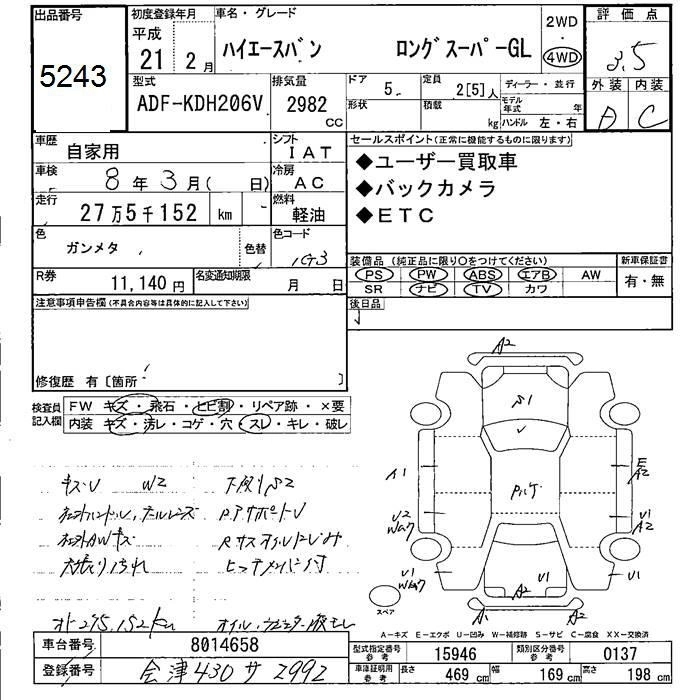 出品番号 初度登録年月 車名・グレード 2WD 評価点
5243 平成 21 2月 ハイエースバン ロングスーパーGL 4WD 3.5
型式 排気量 ドア 定員 ディーラー・並行 外装 内装
ADF-KDH206V 2982 CC 5 2[5]人 モデル年式 年 D C
形状 積載 kg ハンドル 左・右
車歴 自家用 シフト IAT セールスポイント(正常に機能するものに限ります)
車検 8年3月( 日) 冷房 AC ◆ユーザー買取車
走行 27万5千152 km 燃料 軽油 ◆バックカメラ
◆ETC
色 ガンメタ 色替 色コード 1G3
装備品 (純正品に限り〇をつけてください) 新車保証書
R券 11,140円 名変通知期限 月 日 PS PW ABS エアB AW 有・無
SR ナビ TV カワ
注意事項申告欄(不具合内容等は具体的に記入して下さい) 後日品
修復歴 有〔箇所 〕
検査員記入欄 FW キズ・飛石・ヒビ割・リペア跡・×要
内装 キズ・汚レ・コゲ・穴・スレ・キレ・破レ
A2
S1
A1 E A2
U2 Wav7 U1 A2
U1 Wav7 A2 U1 U1
A1 A2
スペア
キズU W2 下廻りS2
オイル
A-キズ E-エクボ U-凹み W-補修跡 S-サビ C-腐食 XX-交換済
車台番号 8014658 型式指定番号 参考 15946 類別区分番号 参考 0137
登録番号 会津430サ2992 車体証明用 参考 長さ 469 cm 幅 169 cm 高さ 198 cm